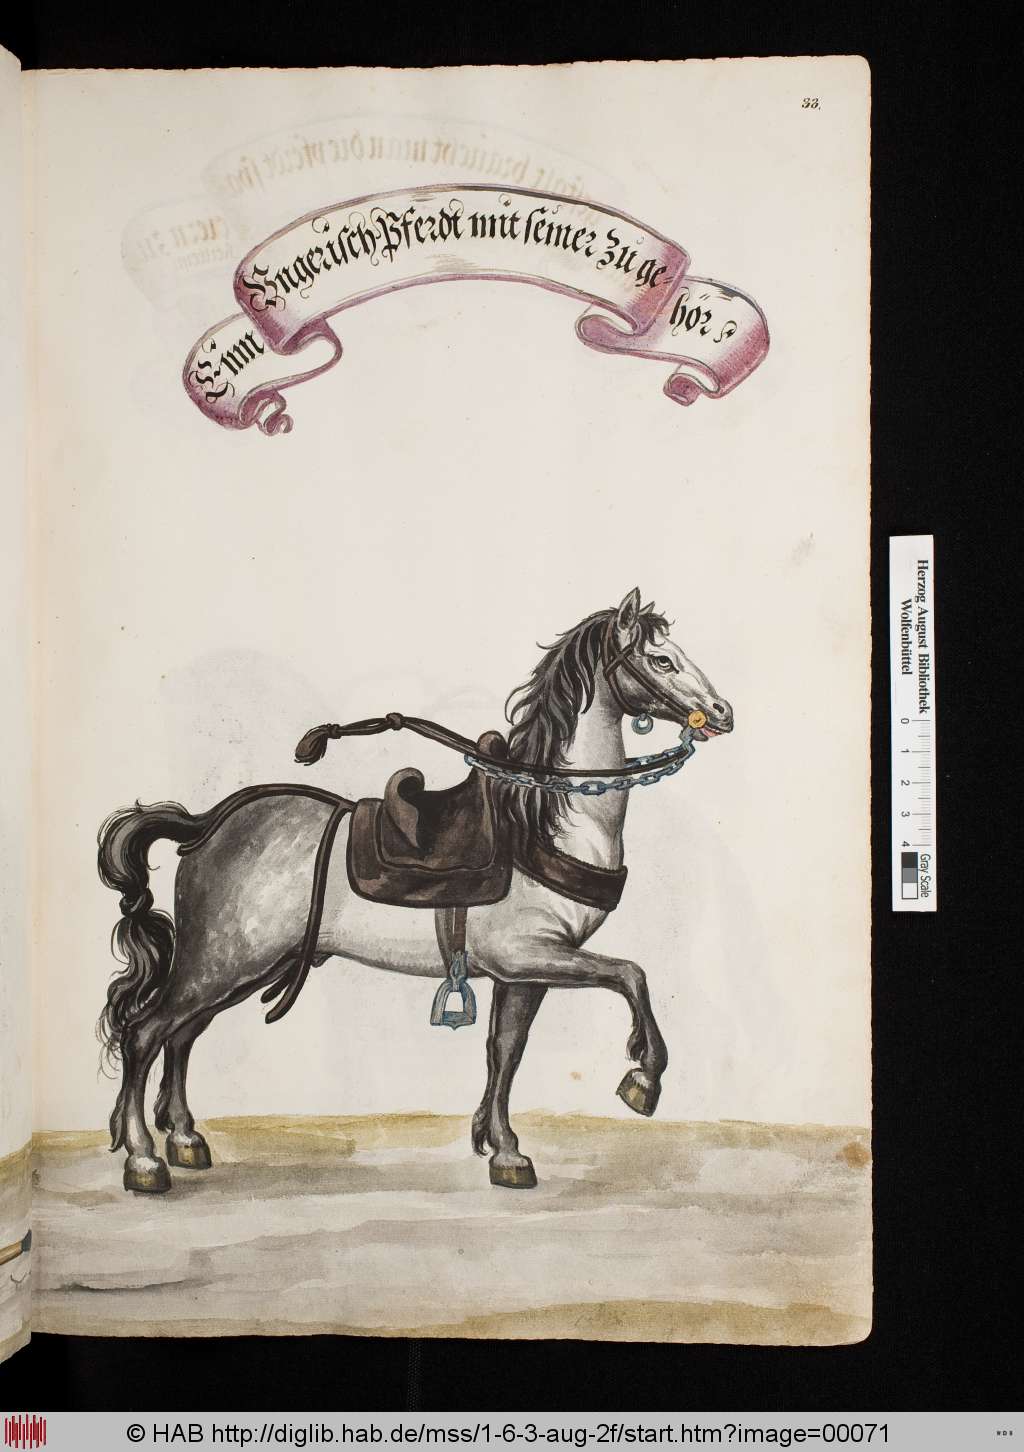 33.
Einn Vngerisch Pferdt mit seiner Zu ge-
hör
Herzog August Bibliothek
Wolfenbüttel
0 1 2 3 4
Gray Scale
© HAB http://diglib.hab.de/mss/1-6-3-aug-2f/start.htm?image=00071